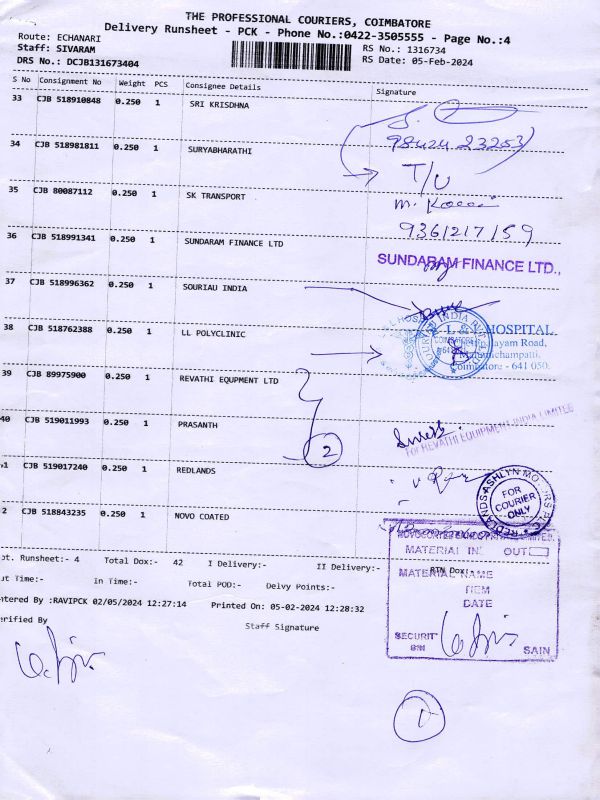 THE PROFESSIONAL COURIERS, COIMBATORE
Delivery Runsheet - PCK - Phone No.:0422-3505555 - Page No.:4
Route: ECHANARI
RS No.: 1316734
Staff: SIVARAM
RS Date: 05-Feb-2024
DRS No.: DCJB131673404
S No Consignment No Weight PCS Consignee Details Signature
33 CJB 518910848 0.250 1 SRI KRISDHNA
34 CJB 518981811 0.250 1 SURYABHARATHI
T/U
35 CJB 80087112 0.250 1 SK TRANSPORT
9361217159
36 CJB 518991341 0.250 1 SUNDARAM FINANCE LTD
SUNDARAM FINANCE LTD.,
37 CJB 518996362 0.250 1 SOURIAU INDIA
38 CJB 518762388 0.250 1 LL POLYCLINIC
L & L HOSPITAL
Coimbatore - 641 050.
39 CJB 89975900 0.250 1 REVATHI EQUPMENT LTD
For REVATHI EQUIPMENT INDIA LIMITED
40 CJB 519011993 0.250 1 PRASANTH
2
CJB 519017240 0.250 1 REDLANDS
REDLANDS ASHLYN MOTORS
FOR
COURIER
ONLY
2 CJB 518843235 0.250 1 NOVO COATED
MATERIAL IN OUT
MATERIAL NAME
ITEM
DATE
SECURIT
SAIN
ot. Runsheet:- 4 Total Dox:- 42 I Delivery:- II Delivery:- RTN Dox:-
ut Time:- in Time:- Total POD:- Delvy Points:-
ntered By :RAVIPCK 02/05/2024 12:27:14 Printed On: 05-02-2024 12:28:32
erified By
Staff Signature
1